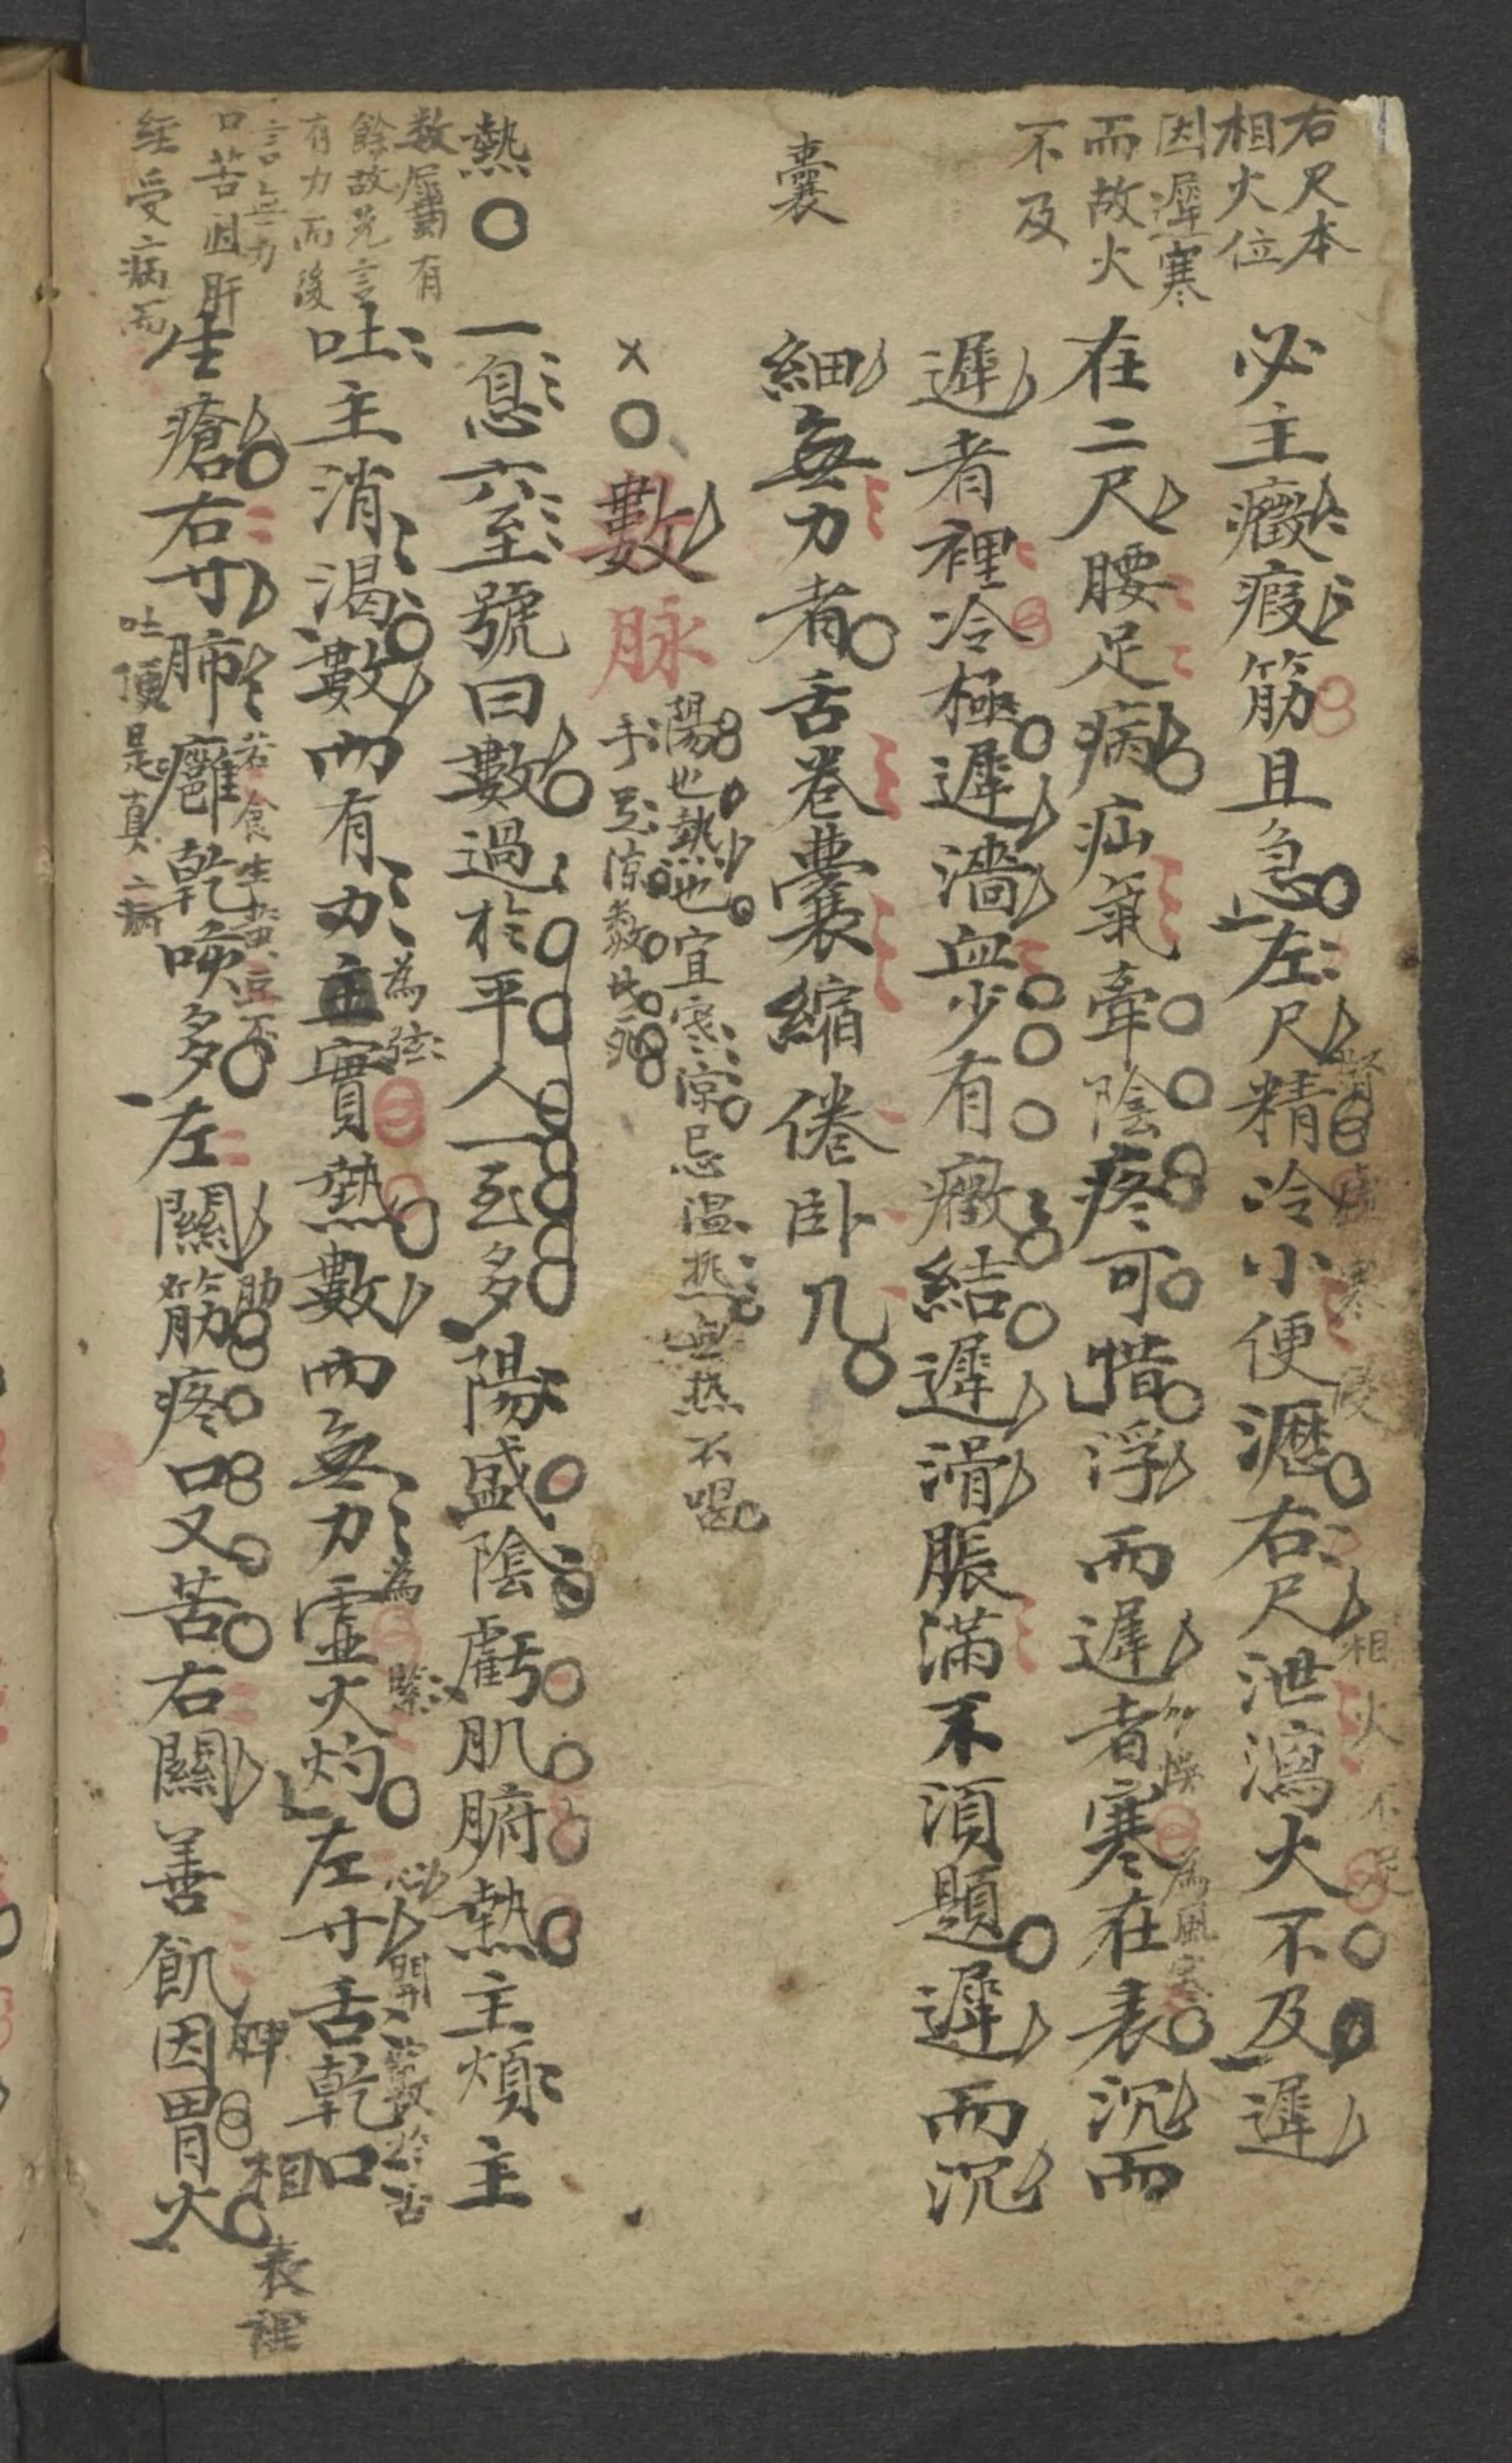 右尺本
相火位
因遲寒
而故火
不及
必主癥瘕筋且急左尺精冷小便瀝右尺泄瀉火不及遲
腎虛寒侵
相火不及
在二尺腰足病疝氣牽陰疼可惜浮而遲者寒在表沉而
為風寒
遲者裡冷極遲濇血少有癥結遲滑脹滿不湏題遲而沉
囊
細無力者舌卷囊縮倦卧几
×〇數脉
陽也熱也宜寒凉忌温熱無热不喝
手足凉数必死
熱〇
一息六至號曰數過於平人一至多陽盛陰虧肌腑熱主煩主
数屬有
餘故先言
有力而後
言無力
吐主消渴數而有力主實熱數而無力虛火灼左寸舌乾口
為弦
為緊
口苦因肝
經受病而
生瘡右寸肺癰乾咳多左關筋疼口又苦右關善飢因胃火
若食生黃豆不
吐便是真病
肋
脾相表裡